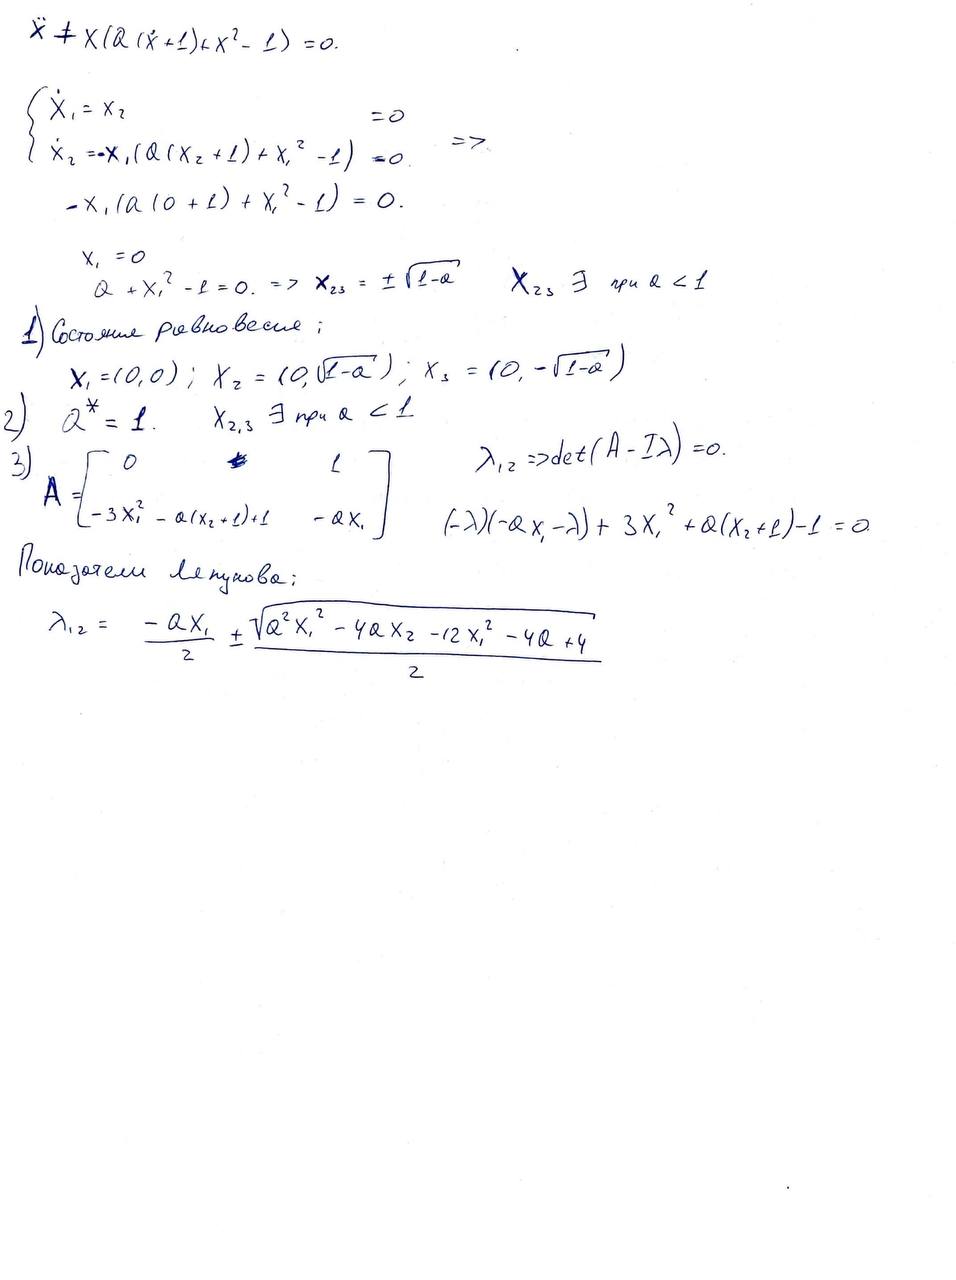 ẍ + x(a(ẋ+1)+x²-1) = 0.
{ ẋ₁ = x₂ = 0
ẋ₂ = -x₁(a(x₂+1)+x₁²-1) = 0. =>
-x₁(a(0+1)+x₁²-1) = 0.
x₁ = 0
a + x₁² - 1 = 0. => x₂₃ = ±√(1-a) x₂₃ ∃ при a < 1
1) Состояние равновесие:
x₁=(0,0); x₂ = (0,√(1-a)); x₃ = (0,-√(1-a))
2) a* = 1. x₂,₃ ∃ при a < 1
3) A = [ 0 1
-3x₁² - a(x₂+1)+1 -ax₁ ]
λ₁₂ => det(A - Iλ) = 0.
(-λ)(-ax₁-λ) + 3x₁² + a(x₂+1)-1 = 0
Показатели Ляпунова:
λ₁₂ = -ax₁/2 ± √(a²x₁² - 4ax₂ - 12x₁² - 4a + 4)/2